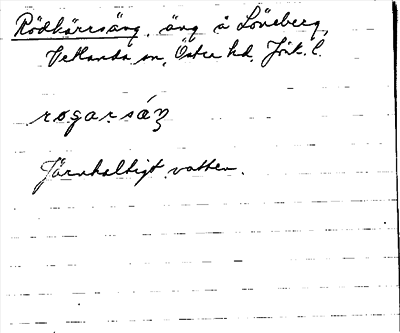 Rödkärrsäng, äng å Löneberg,
Vetlanda sn, Östra hd, Jönk. l.
røgarsáʒ
Järnhaltigt vatten.